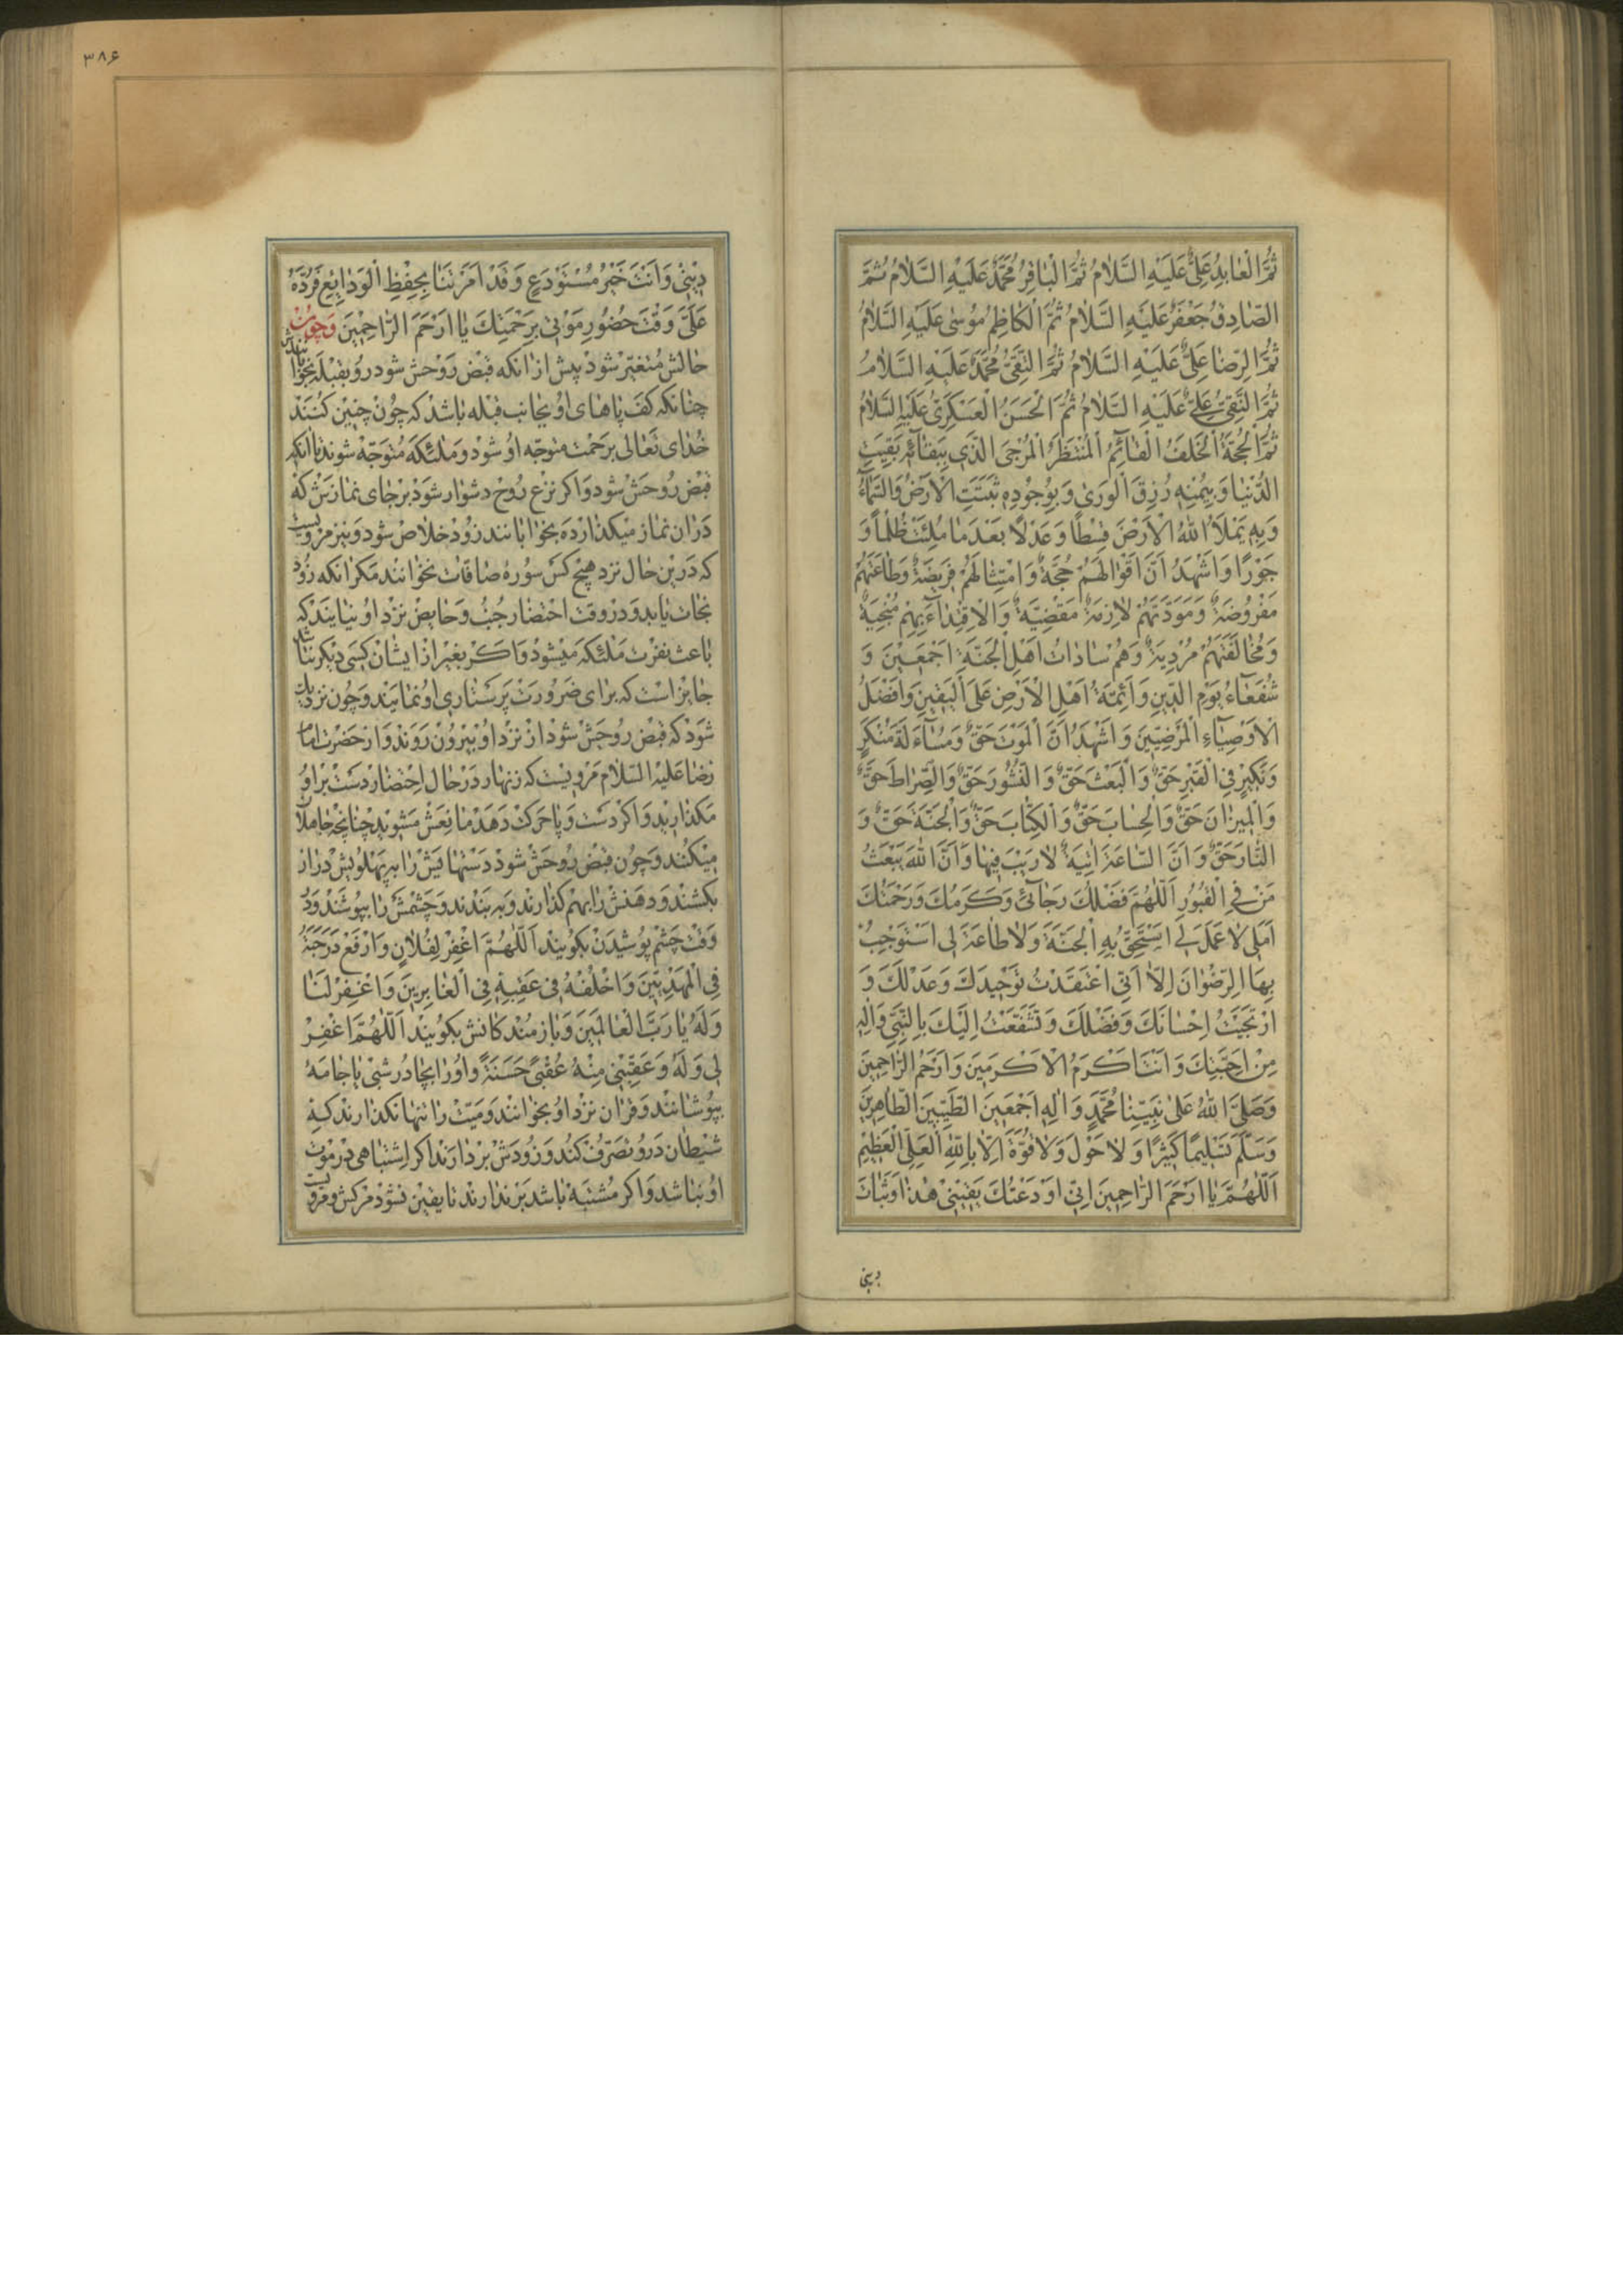 ثُمَّ الْعٰابِدُ عَلِیٌّ عَلَیْهِ السَّلٰامُ ثُمَّ الْبٰاقِرُ مُحَمَّدٌ عَلَیْهِ السَّلٰامُ ثُمَّ
الصّٰادِقُ جَعْفَرٌ عَلَیْهِ السَّلٰامُ ثُمَّ الْکٰاظِمُ مُوسٰی عَلَیْهِ السَّلٰامُ
ثُمَّ الرِّضٰا عَلِیٌّ عَلَیْهِ السَّلٰامُ ثُمَّ التَّقِیُّ مُحَمَّدٌ عَلَیْهِ السَّلٰامُ
ثُمَّ النَّقِیُّ عَلِیٌّ عَلَیْهِ السَّلٰامُ ثُمَّ الْحَسَنُ الْعَسْکَرِیُّ عَلَیْهِ السَّلٰامُ
ثُمَّ الْحُجَّةُ الْخَلَفُ الْقٰائِمُ الْمُنْتَظَرُ الْمُرْجَی الَّذِی بِبَقٰائِهِ بَقِیَتِ
الدُّنْیٰا وَ بِیُمْنِهِ رُزِقَ الْوَرٰی وَ بِوُجُودِهِ ثَبَتَتِ الْاَرْضُ وَ السَّمٰاءُ
وَ بِهِ یَمْلَاُ اللّٰهُ الْاَرْضَ قِسْطًا وَ عَدْلًا بَعْدَ مٰا مُلِئَتْ ظُلْمًا وَ
جَوْرًا وَ اَشْهَدُ اَنَّ اَقْوٰالَهُمْ حُجَّةٌ وَ امْتِثٰالَهُمْ فَرِیضَةٌ وَ طٰاعَتَهُمْ
مَفْرُوضَةٌ وَ مَوَدَّتَهُمْ لٰازِمَةٌ مَقْضِیَّةٌ وَ الْاِقْتِدٰاءَ بِهِمْ مُنْجِیَةٌ
وَ مُخٰالَفَتَهُمْ مُرْدِیَةٌ وَ هُمْ سٰادٰاتُ اَهْلِ الْجَنَّةِ اَجْمَعِینَ وَ
شُفَعٰاءُ یَوْمِ الدِّینِ وَ اَئِمَّةُ اَهْلِ الْاَرْضِ عَلَی الْیَقِینِ وَ اَفْضَلُ
الْاَوْصِیٰاءِ الْمَرْضِیِّینَ وَ اَشْهَدُ اَنَّ الْمَوْتَ حَقٌّ وَ مُسٰاءَلَةَ مُنْکَرٍ
وَ نَکِیرٍ فِی الْقَبْرِ حَقٌّ وَ الْبَعْثَ حَقٌّ وَ النُّشُورَ حَقٌّ وَ الصِّرٰاطَ حَقٌّ
وَ الْمِیزٰانَ حَقٌّ وَ الْحِسٰابَ حَقٌّ وَ الْکِتٰابَ حَقٌّ وَ الْجَنَّةَ حَقٌّ وَ
النّٰارَ حَقٌّ وَ اَنَّ السّٰاعَةَ اٰتِیَةٌ لٰا رَیْبَ فِیهٰا وَ اَنَّ اللّٰهَ یَبْعَثُ
مَنْ فِی الْقُبُورِ اَللّٰهُمَّ فَضْلُكَ رَجٰائِی وَ کَرَمُكَ وَ رَحْمَتُكَ
اَمَلِی لٰا عَمَلَ لِی اَسْتَحِقُّ بِهِ الْجَنَّةَ وَ لٰا طٰاعَةَ لِی اَسْتَوْجِبُ
بِهَا الرِّضْوٰانَ اِلّٰا اَنِّی اعْتَقَدْتُ تَوْحِیدَكَ وَ عَدْلَكَ وَ
ارْتَجَیْتُ اِحْسٰانَكَ وَ فَضْلَكَ وَ تَشَفَّعْتُ اِلَیْكَ بِالنَّبِیِّ وَ اٰلِهِ
مِنْ اَحِبَّتِكَ وَ اَنْتَ اَکْرَمُ الْاَکْرَمِینَ وَ اَرْحَمُ الرّٰاحِمِینَ
وَ صَلَّی اللّٰهُ عَلٰی نَبِیِّنٰا مُحَمَّدٍ وَ اٰلِهِ اَجْمَعِینَ الطَّیِّبِینَ الطّٰاهِرِینَ
وَ سَلَّمَ تَسْلِیمًا کَثِیرًا وَ لٰا حَوْلَ وَ لٰا قُوَّةَ اِلّٰا بِاللّٰهِ الْعَلِیِّ الْعَظِیمِ
اَللّٰهُمَّ یٰا اَرْحَمَ الرّٰاحِمِینَ اِنِّی اَوْدَعْتُكَ یَقِینِی هٰذٰا وَ ثَبٰاتَ
دینی
۳۸۶
دِینِی وَ اَنْتَ خَیْرُ مُسْتَوْدَعٍ وَ قَدْ اَمَرْتَنٰا بِحِفْظِ الْوَدٰائِعِ فَرُدَّهُ
عَلَیَّ وَقْتَ حُضُورِ مَوْتِی بِرَحْمَتِكَ یٰا اَرْحَمَ الرّٰاحِمِینَ وَ چون
حالش متغیّر شود پیش از انکه قبض روحش شود رو بقبله بخوابانندش
چنانکه کف پاهای او بجانب قبله باشد که چون چنین کنند
خدای تعالی برحمت متوجّه او شود و ملئکه متوجّه شوند تا انکه
قبض روحش شود و اکر نزع روح دشوار شود بر جای نمازش که
دران نماز میکذارده بخوابانند زود خلاص شود و نیز مرویست
که درین حال نزد هیچ کس سوره صافات نخوانند مکر انکه زود
نجات یابد و در وقت احتضار جنب و حایض نزد او نیایند که
باعث نفرت ملئکه میشود و اکر بغیر از ایشان کسی دیکر نباشد
جایز است که برای ضرورت پرستاری او نمایند و چون نزدیك
شود که قبض روحش شود از نزد او بیرون روند و از حضرت امام
رضا علیه السّلام مرویست که زنهار در حال احتضار دست بر او
مکذارید و اکر دست و پا حرکت دهد مانعش مشوید چنانچه جاهلان
میکنند و چون قبض روحش شود دستهایش را به پهلویش دراز
بکشند و دهنش را بهم کذارند و به بندند و چشمش را بپوشند و در
وقت چشم پوشیدن بکویند اَللّٰهُمَّ اغْفِرْ لِفُلٰانٍ وَ ارْفَعْ دَرَجَتَهُ
فِی الْمَهْدِیِّینَ وَ اخْلُفْهُ فِی عَقِبِهِ فِی الْغٰابِرِینَ وَ اغْفِرْ لَنٰا
وَ لَهُ یٰا رَبَّ الْعٰالَمِینَ و بازمندکانش بکویند اَللّٰهُمَّ اغْفِرْ
لِی وَ لَهُ وَ عَقِّبْنِی مِنْهُ عُقْبًی حَسَنَةً و او را بچادر شبی یا جامه
بپوشانند و قران نزد او بخوانند و میّت را تنها نکذارند که
شیطان درو تصرّف کند و زودش بردارند اکر اشتباهی در موت
او نباشد و اکر مشتبه باشد برندارند تا یقین نشود مرکش و مرویست